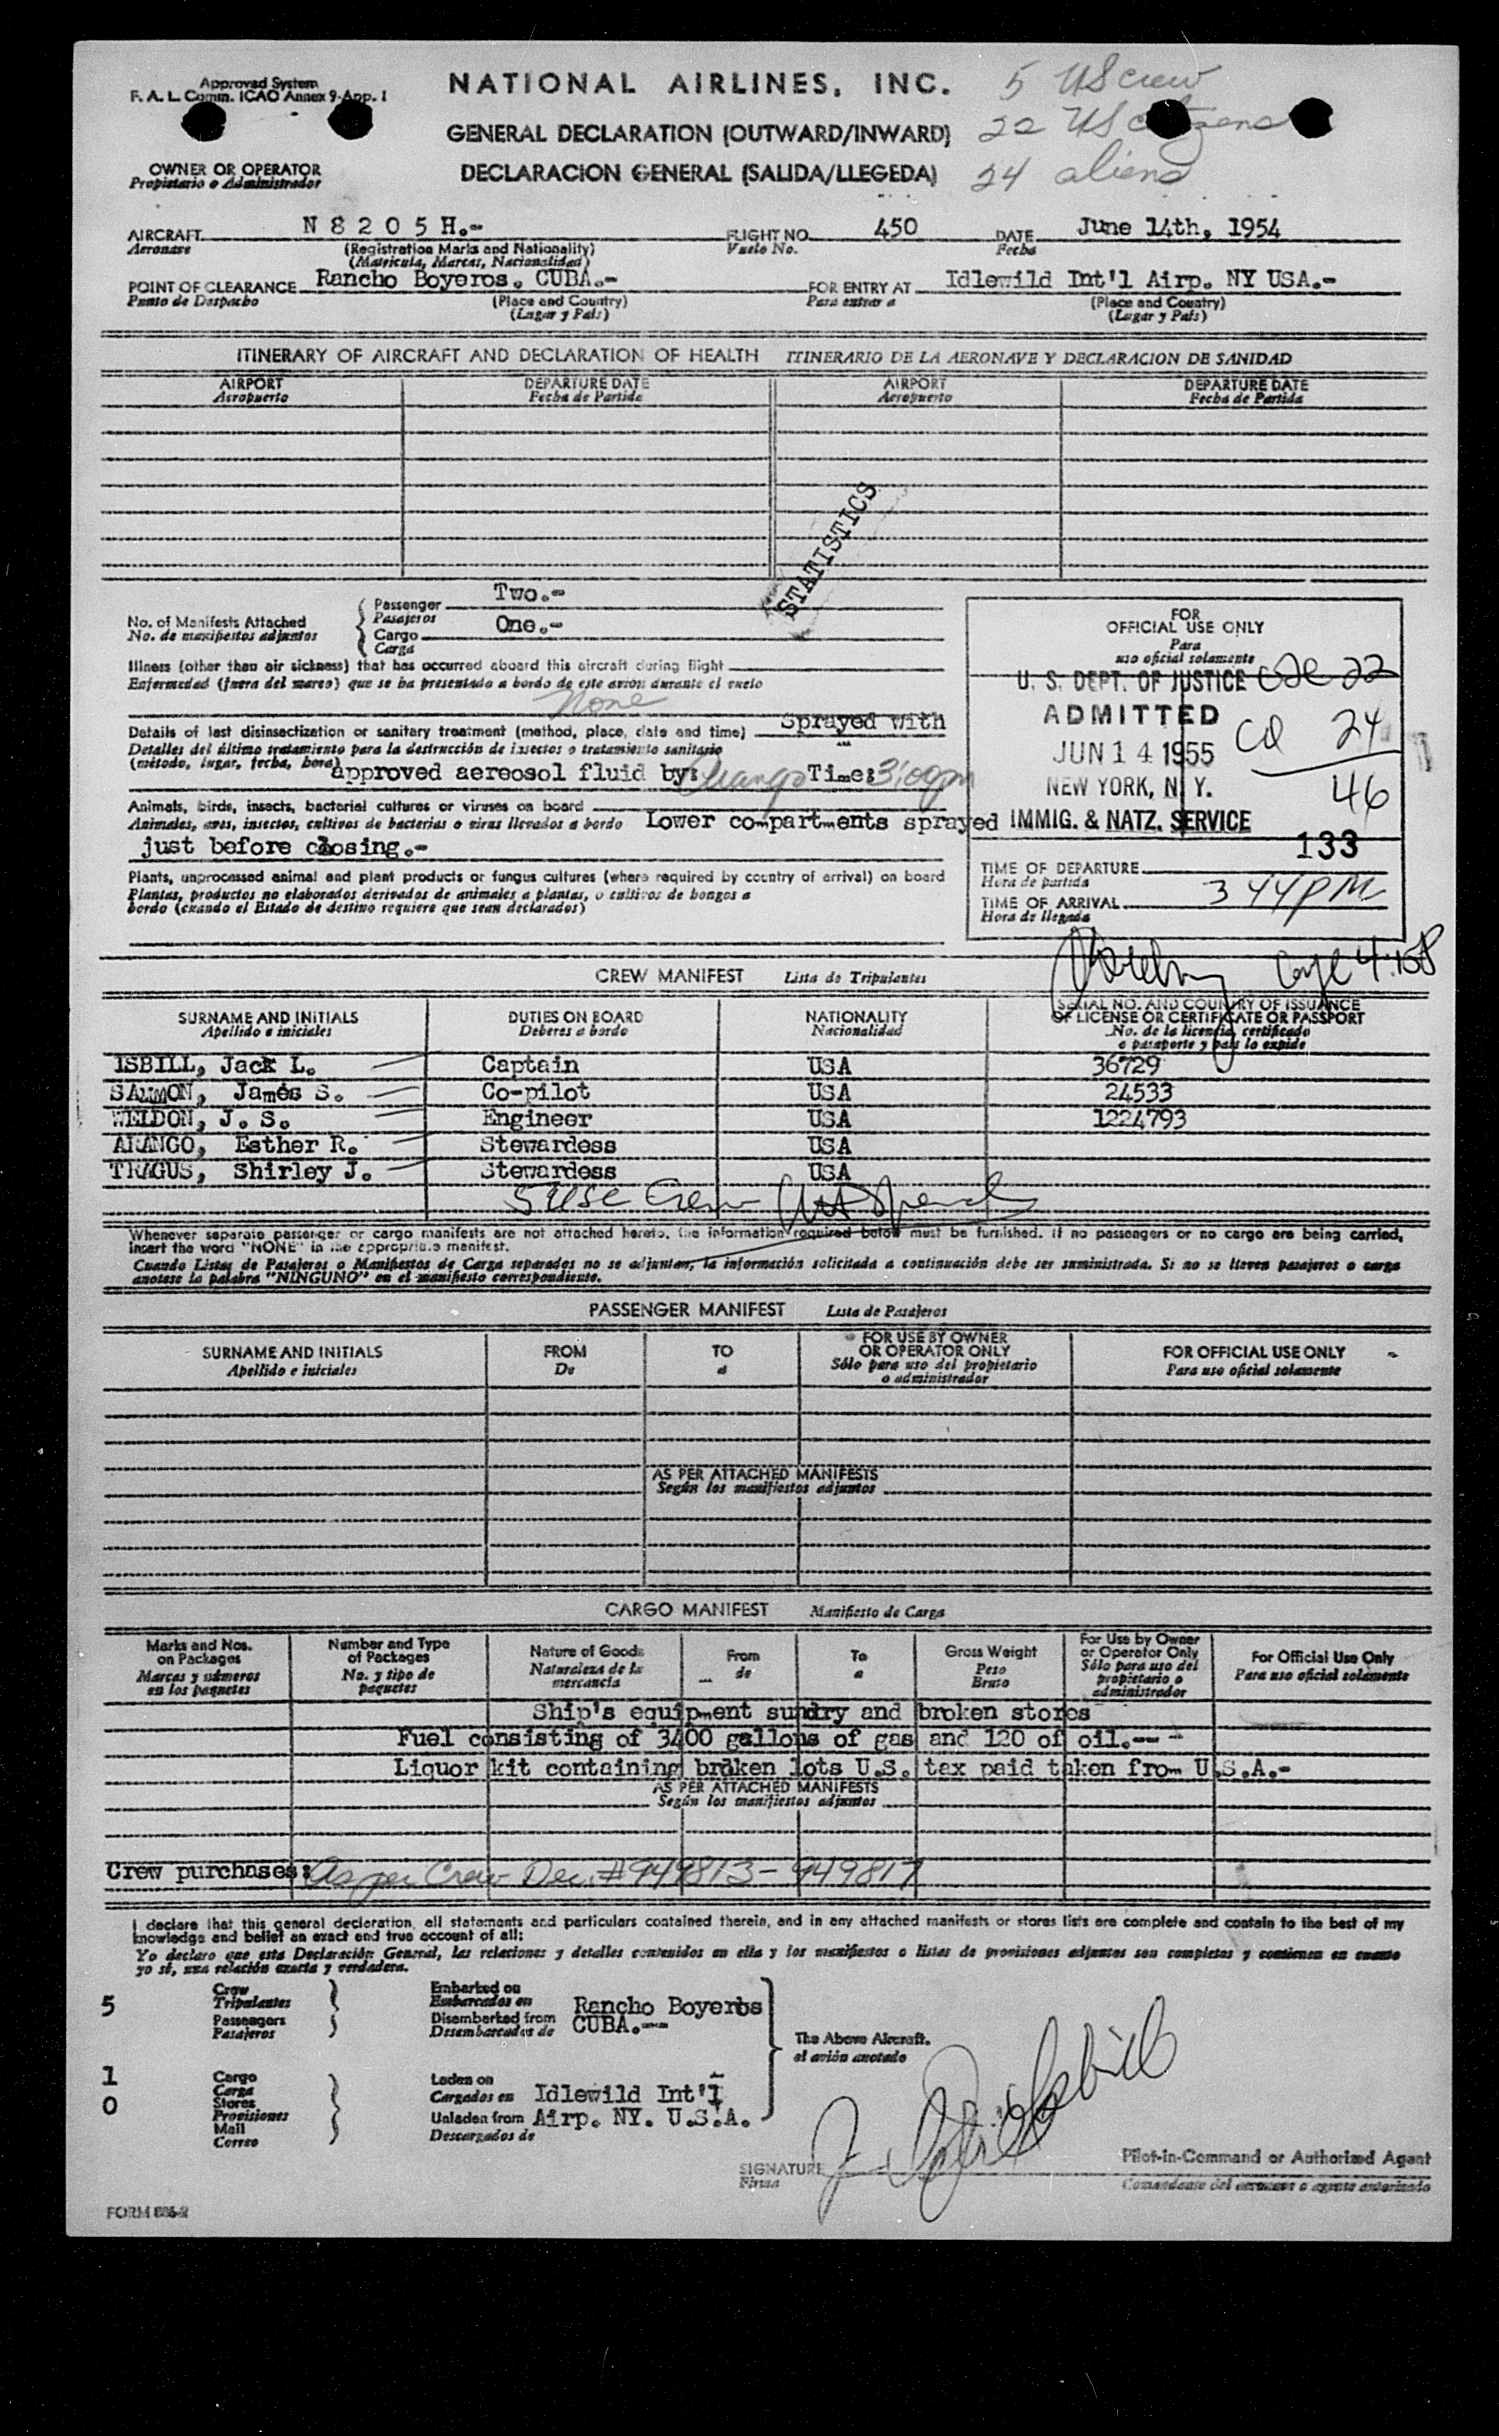 Approved System
F. A. L. Comm. ICAO Annex 9-App. I
NATIONAL AIRLINES, INC.
5 US crew
22 US citizens
24 aliens
GENERAL DECLARATION (OUTWARD/INWARD)
OWNER OR OPERATOR
Propietario o Administrador
DECLARACION GENERAL (SALIDA/LLEGEDA)
AIRCRAFT N 8 2 0 5 H.- FLIGHT NO. 450 DATE June 14th, 1954
Aeronave (Registration Marks and Nationality) Vuelo No. Fecha
(Matricula, Marcas, Nacionalidad)
POINT OF CLEARANCE Rancho Boyeros. CUBA.- FOR ENTRY AT Idlewild Int'l Airp. NY USA.-
Punto de Despacho (Place and Country) Para entrar a (Place and Country)
(Lugar y País) (Lugar y País)
ITINERARY OF AIRCRAFT AND DECLARATION OF HEALTH ITINERARIO DE LA AERONAVE Y DECLARACION DE SANIDAD
AIRPORT DEPARTURE DATE AIRPORT DEPARTURE DATE
Aeropuerto Fecha de Partida Aeropuerto Fecha de Partida
STATISTICS
No. of Manifests Attached
No. de manifiestos adjuntos
Passenger Two.-
Pasajeros
Cargo One.-
Carga
Illness (other than air sickness) that has occurred aboard this aircraft during flight
Enfermedad (fuera del mareo) que se ha presentado a bordo de este avion durante el vuelo
None
Details of last disinsectization or sanitary treatment (method, place, date and time) Sprayed with
Detalles del último tratamiento para la destrucción de insectos o tratamiento sanitario
(método, lugar, fecha, hora) approved aereosol fluid by: Arango Time: 3:00pm
Animals, birds, insects, bacterial cultures or viruses on board
Animales, aves, insectos, cultivos de bacterias o virus llevados a bordo Lower compartments sprayed
just before closing.-
Plants, unprocessed animal and plant products or fungus cultures (where required by country of arrival) on board
Plantas, productos no elaborados derivados de animales a plantas, o cultivos de hongos a
bordo (cuando el Estado de destino requiere que sean declarados)
FOR
OFFICIAL USE ONLY
Para
uso oficial solamente
U. S. DEPT. OF JUSTICE 22
ADMITTED
24
JUN 14 1955
NEW YORK, N. Y. 46
IMMIG. & NATZ. SERVICE
133
TIME OF DEPARTURE
Hora de partida
TIME OF ARRIVAL 3 44 PM
Hora de llegada
CREW MANIFEST Lista de Tripulantes
SURNAME AND INITIALS DUTIES ON BOARD NATIONALITY SERIAL NO. AND COUNTRY OF ISSUANCE OF LICENSE OR CERTIFICATE OR PASSPORT
Apellido e iniciales Deberes a bordo Nacionalidad No. de la licencia, certificado o pasaporte y país lo expide
ISBILL, Jack L. Captain USA 36729
SALMON, James S. Co-pilot USA 24533
WELDON, J. S. Engineer USA 1224793
ARANGO, Esther R. Stewardess USA
TRAGUS, Shirley J. Stewardess USA
5 USC Crew
Whenever separate passenger or cargo manifests are not attached hereto, the information required below must be furnished. If no passengers or no cargo are being carried,
insert the word "NONE" in the appropriate manifest.
Cuando Listas de Pasajeros o Manifiestos de Carga separados no se adjuntan, la información solicitada a continuación debe ser suministrada. Si no se lleven pasajeros o carga
anotese la palabra "NINGUNO" en el manifiesto correspondiente.
PASSENGER MANIFEST Lista de Pasajeros
SURNAME AND INITIALS FROM TO FOR USE BY OWNER OR OPERATOR ONLY FOR OFFICIAL USE ONLY
Apellido e iniciales De a Sólo para uso del propietario o administrador Para uso oficial solamente
AS PER ATTACHED MANIFESTS
Según los manifiestos adjuntos
CARGO MANIFEST Manifiesto de Carga
Marks and Nos. on Packages Number and Type of Packages Nature of Goods From To Gross Weight For Use by Owner or Operator Only For Official Use Only
Marcas y números en los paquetes No. y tipo de paquetes Naturaleza de la mercancia de a Peso Bruto Sólo para uso del propietario o administrador Para uso oficial solamente
Ship's equipment sundry and broken stores
Fuel consisting of 3400 gallons of gas and 120 of oil.---
Liquor kit containing broken lots U.S. tax paid taken from U.S.A.-
AS PER ATTACHED MANIFESTS
Según los manifiestos adjuntos
Crew purchases: As per Crew Dec. # 949813 - 949817
I declare that this general declaration, all statements and particulars contained therein, and in any attached manifests or stores lists are complete and contain to the best of my
knowledge and belief an exact and true account of all:
Yo declaro que esta Declaración General, las relaciones y detalles contenidos en ella y los manifiestos o listas de provisiones adjuntos son completos y contienen en cuanto
yo sé, una relación exacta y verdadera.
5 Crew Embarked on
Tripulantes Embarcados en Rancho Boyeros
Passengers Disembarked from CUBA.--
Pasajeros Desembarcados de
The Above Aircraft.
el avión anotado
1 Cargo Laden on
Carga Cargados en Idlewild Int'l
0 Stores
Provisiones Unladen from Airp. NY. U.S.A.
Mail Descargados de
Correo
SIGNATURE Pilot-in-Command or Authorized Agent
Firma Comandante del aeronave o agente autorizado